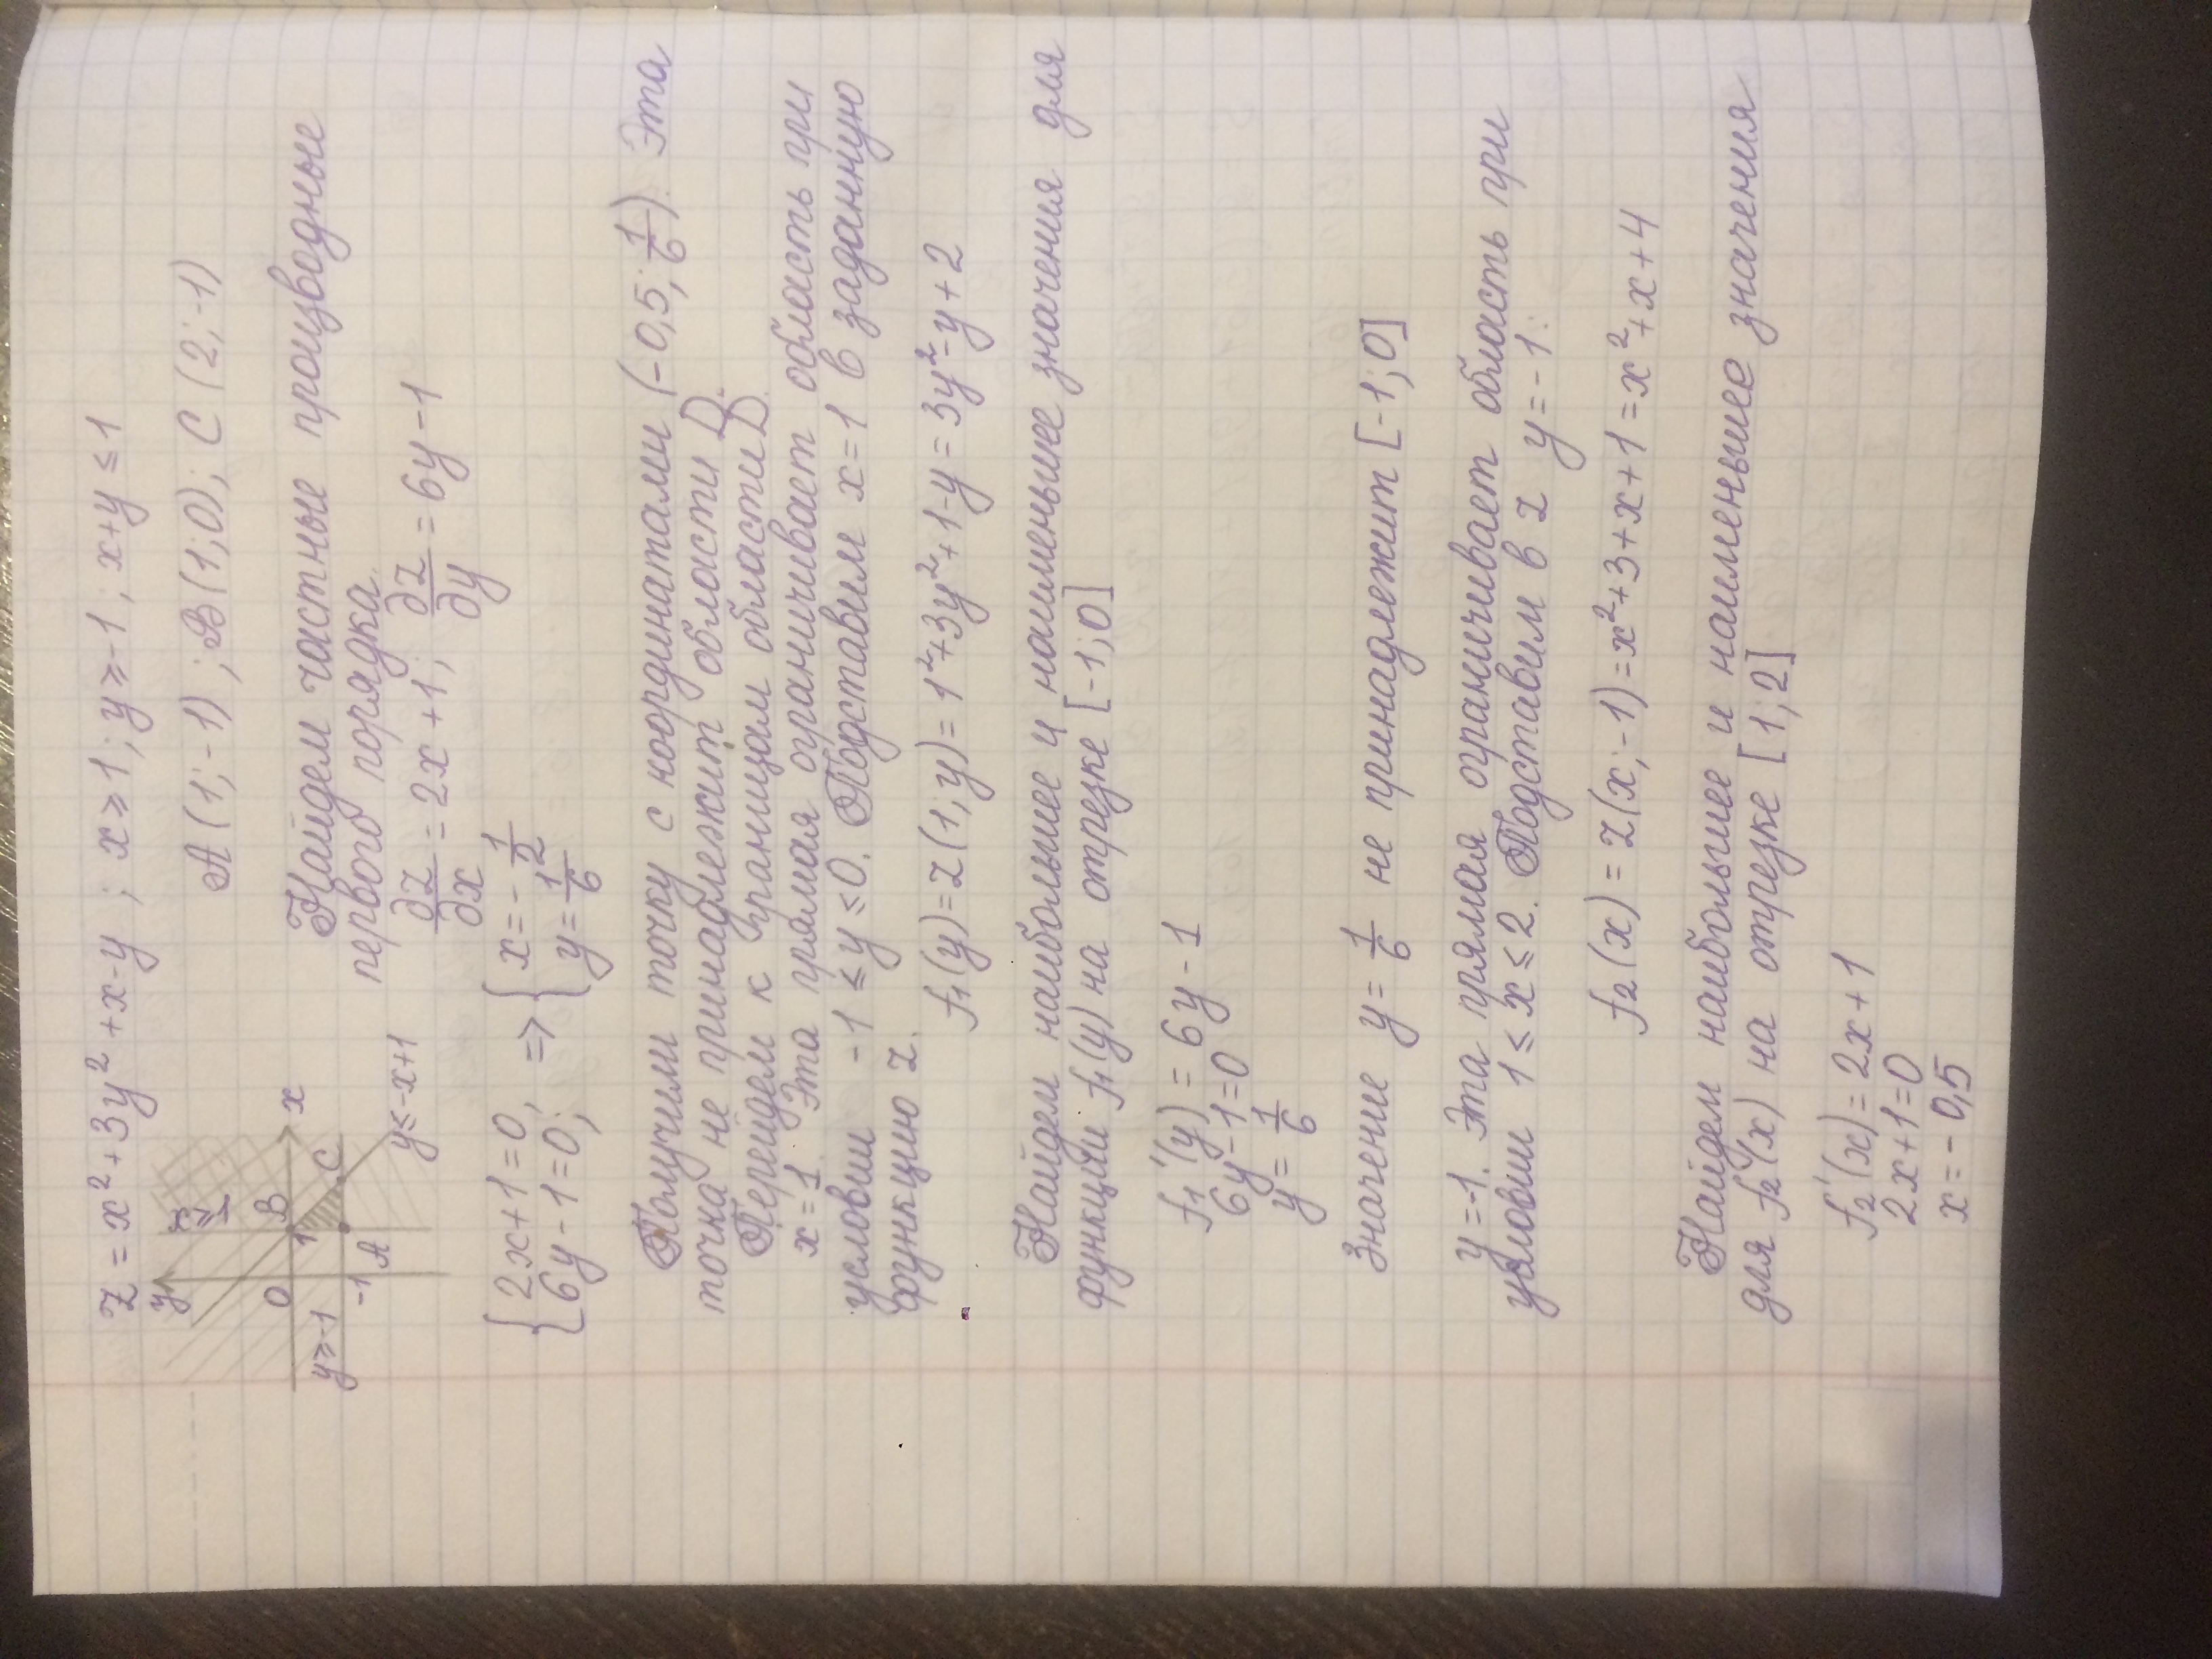 z = x² + 3y² + x - y ; x ≥ 1 ; y ≥ -1 ; x + y ≤ 1
A (1; -1) ; B (1; 0) ; C (2; -1)
y
x ≥ 1
0
1
B
x
y ≥ -1
-1
A
C
y ≤ -x+1
Найдем частные производные
первого порядка.
∂z/∂x = 2x + 1; ∂z/∂y = 6y - 1
{ 2x + 1 = 0, 6y - 1 = 0; => { x = - 1/2 y = 1/6
Получим точку с координатами (-0,5; 1/6). Эта
точка не принадлежит области D.
Перейдем к границам области D.
x = 1. Эта прямая ограничивает область при
условии -1 ≤ y ≤ 0. Подставим x = 1 в заданную
функцию z.
f₁(y) = z(1; y) = 1² + 3y² + 1 - y = 3y² - y + 2
Найдем наибольшее и наименьшее значения для
функции f₁(y) на отрезке [-1; 0]
f₁'(y) = 6y - 1
6y - 1 = 0
y = 1/6
Значение y = 1/6 не принадлежит [-1; 0]
y = -1. Эта прямая ограничивает область при
условии 1 ≤ x ≤ 2. Подставим в z y = -1:
f₂(x) = z(x; -1) = x² + 3 + x + 1 = x² + x + 4
Найдем наибольшее и наименьшее значения
для f₂(x) на отрезке [1; 2]
f₂'(x) = 2x + 1
2x + 1 = 0
x = - 0,5